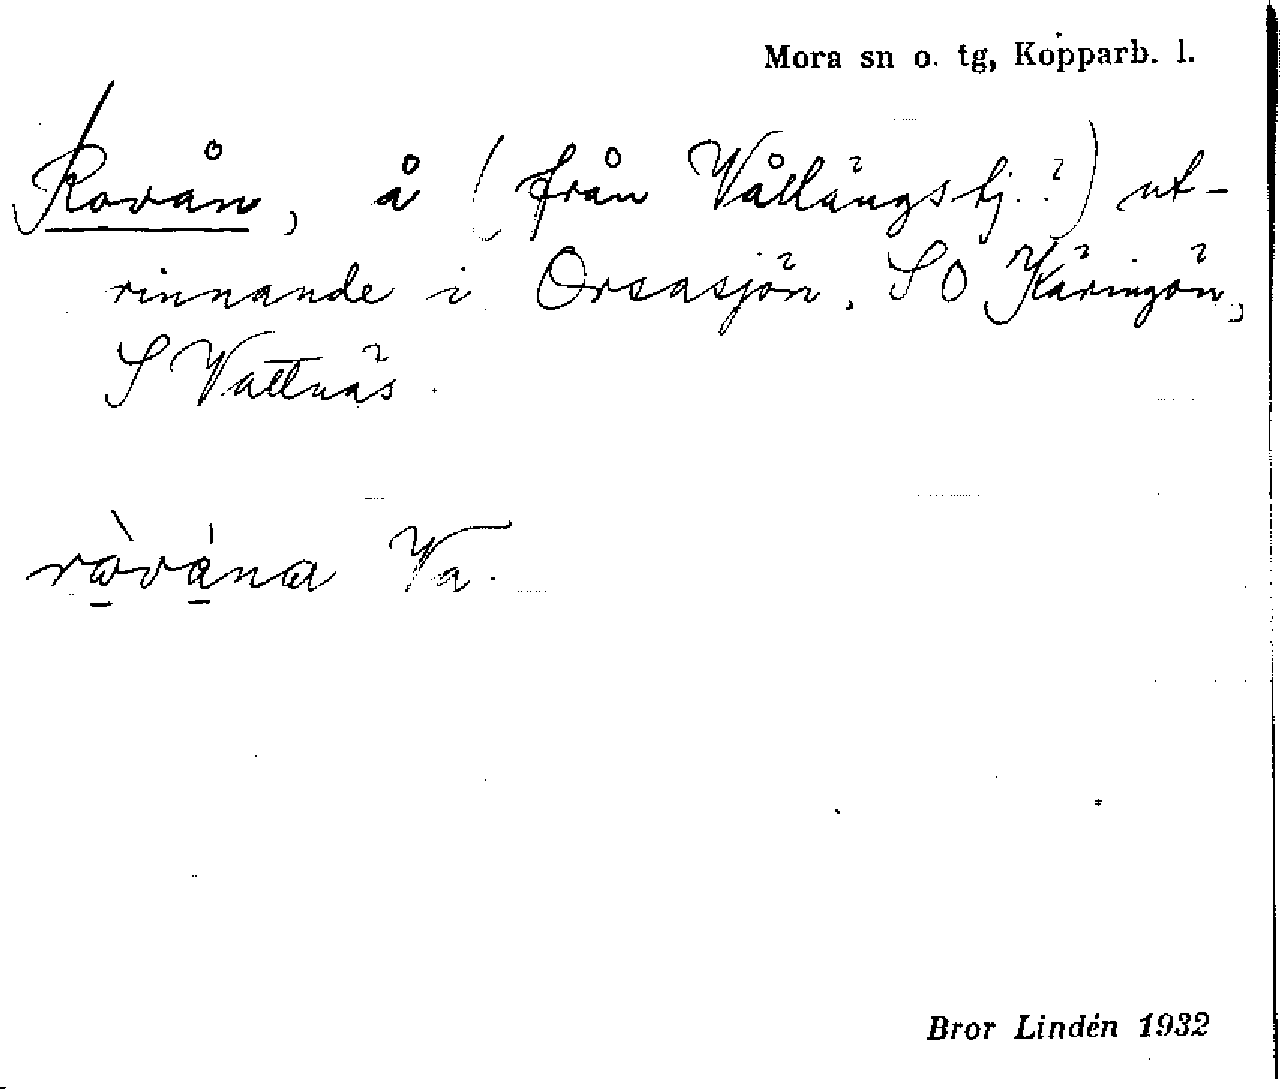 Mora sn o. tg, Kopparb. l.
Rovån, å (från Vållängstj.?) ut-
rinnande i Orsasjön, SO Käringön,
S Vattnäs.
ròvána Va.
Bror Lindén 1932